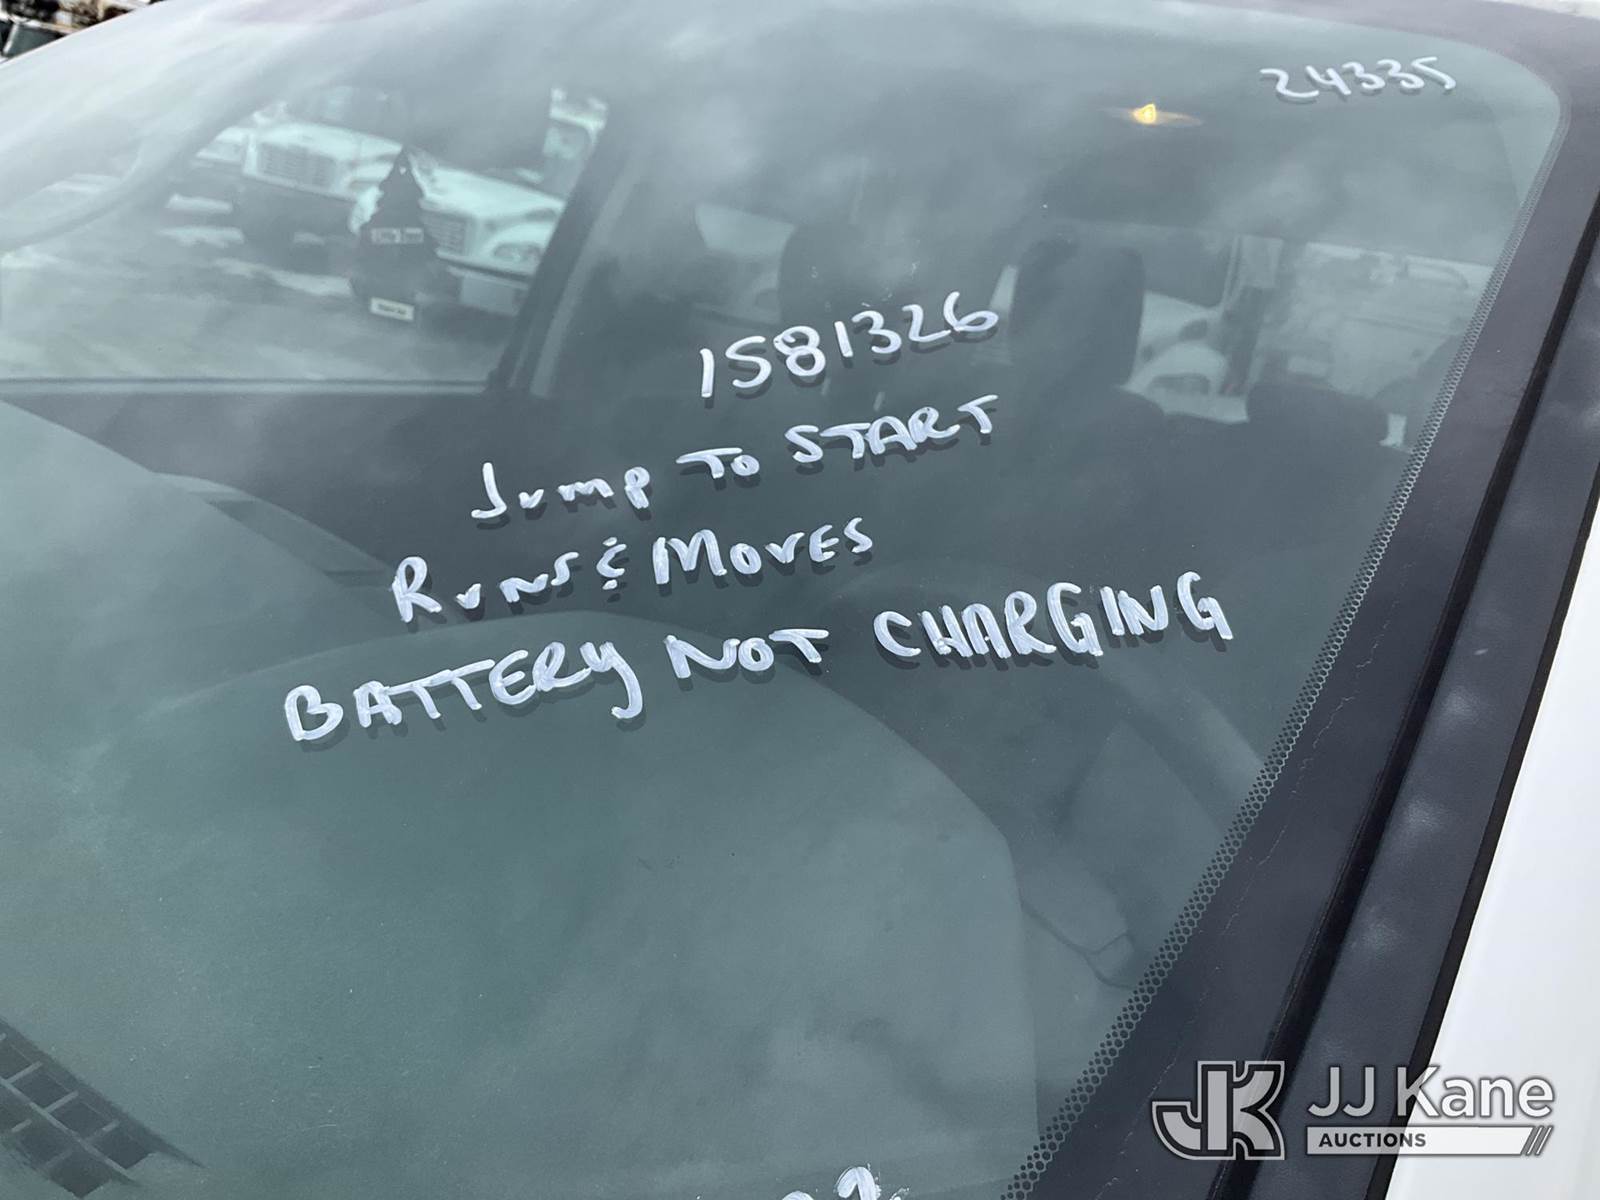 24335
1581326
JUMP TO START
RUNS & MOVES
BATTERY NOT CHARGING
JK JJ Kane
AUCTIONS